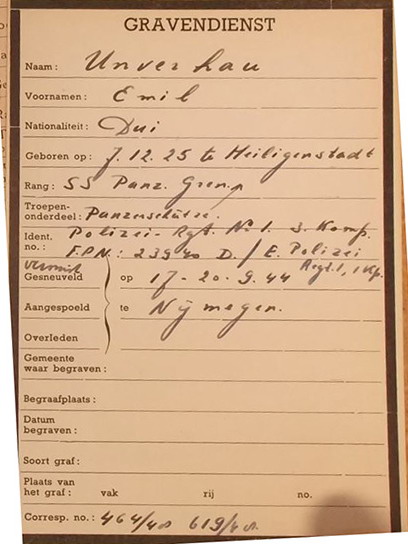 GRAVENDIENST
Naam: Unverhau
Voornamen: Emil
Nationaliteit: Dui
Geboren op: 7.12.25 te Heiligenstadt
Rang: SS Panz. Gren.
Troepen-
onderdeel: Panzerschütze.
Polizei- Rgt. No 1. 3. Komp.
Ident.
no.: F.P.N.: 23940 D. / E. Polizei
Regt. 1, 1 Kp.
Vermist
Gesneuveld op 17-20.9.44
Aangespoeld te Nijmegen.
Overleden
Gemeente
waar begraven:
Begraafplaats:
Datum
begraven:
Soort graf:
Plaats van
het graf: vak rij no.
Corresp. no.: 464/48 619/48.